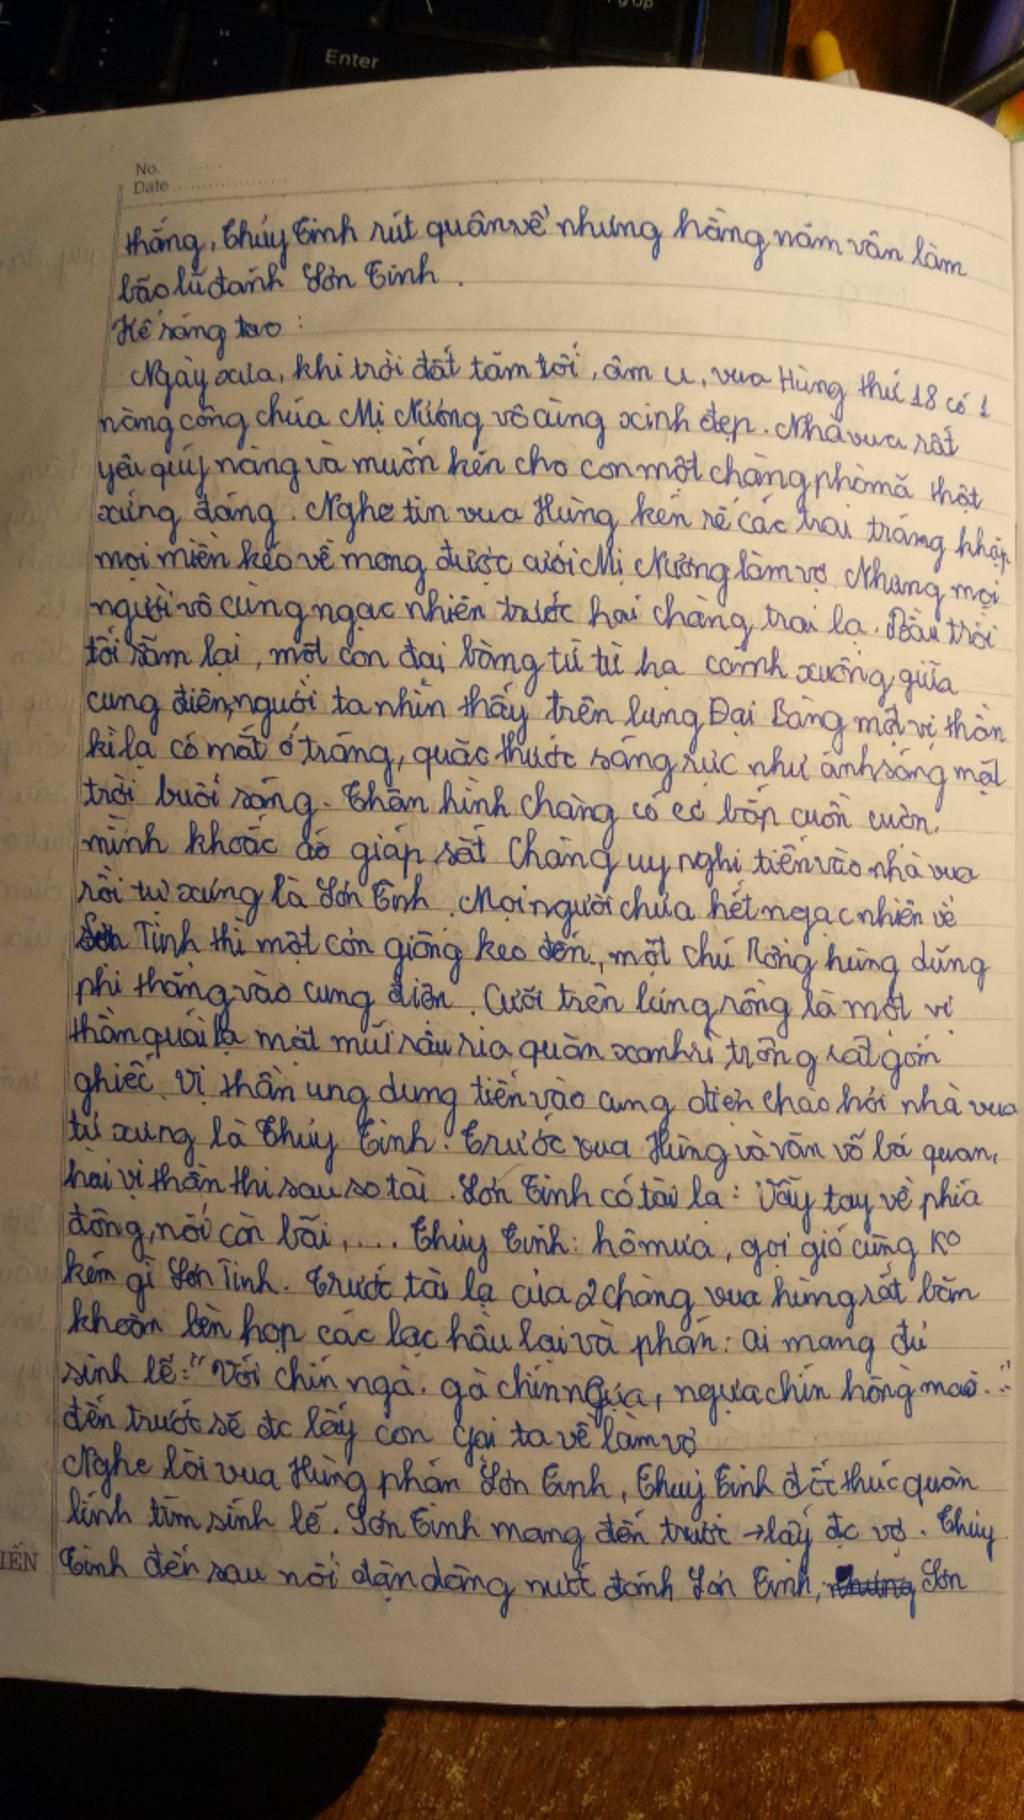 Enter
No.
Date
thắng, Thủy Tinh rút quân về nhưng hằng năm vẫn làm
bão lũ đánh Sơn Tinh.
Kể sáng tạo:
Ngày xưa, khi trời đất tăm tối, âm u, vua Hùng thứ 18 có 1
nàng công chúa Mị Nương vô cùng xinh đẹp. Nhà vua rất
yêu quý nàng và muốn kén cho con một chàng phò mã thật
xứng đáng. Nghe tin vua Hùng kén rể các trai tráng khắp
mọi miền kéo về mong được cưới Mị Nương làm vợ. Nhưng mọi
người vô cùng ngạc nhiên trước hai chàng trai lạ. Bầu trời
tối sầm lại, một con đại bàng từ từ hạ cánh xuống giữa
cung điện, người ta nhìn thấy trên lưng Đại Bàng một vị thần
kì lạ có mắt trắng, quắc thước sáng rực như ánh sáng mặt
trời buổi sáng. Thân hình chàng có cơ bắp cuồn cuộn,
mình khoác áo giáp sắt Chàng uy nghi tiến vào nhà vua
rồi tự xưng là Sơn Tinh. Mọi người chưa hết ngạc nhiên về
Sơn Tinh thì một cơn giông kéo đến, một chú Rồng hùng dũng
phi thẳng vào cung điện. Cưỡi trên lưng rồng là một vị
thần quái lạ mặt mũi râu ria quăn xanh rì trông rất gớm
ghiếc. Vị thần ung dung tiến vào cung điện chào hỏi nhà vua
tự xưng là Thủy Tinh. Trước vua Hùng và văn võ bá quan,
hai vị thần thi sau so tài. Sơn Tinh có tài lạ: Vẫy tay về phía
đông, nổi cồn bãi, .... Thủy Tinh: hô mưa, gọi gió cũng ko
kém gì Sơn Tinh. Trước tài lạ của 2 chàng vua hùng rất băn
khoăn bèn họp các lạc hầu lại và phán: ai mang đủ
sính lễ: "Voi chín ngà, gà chín cựa, ngựa chín hồng mao..."
đến trước sẽ đc lấy con gái ta về làm vợ
Nghe lời vua Hùng phán Sơn Tinh, Thủy Tinh đốc thúc quân
lính tìm sính lễ. Sơn Tinh mang đến trước → lấy đc vợ. Thủy
IẾN
Tinh đến sau nổi dận dâng nước đánh Sơn Tinh, nhưng Sơn